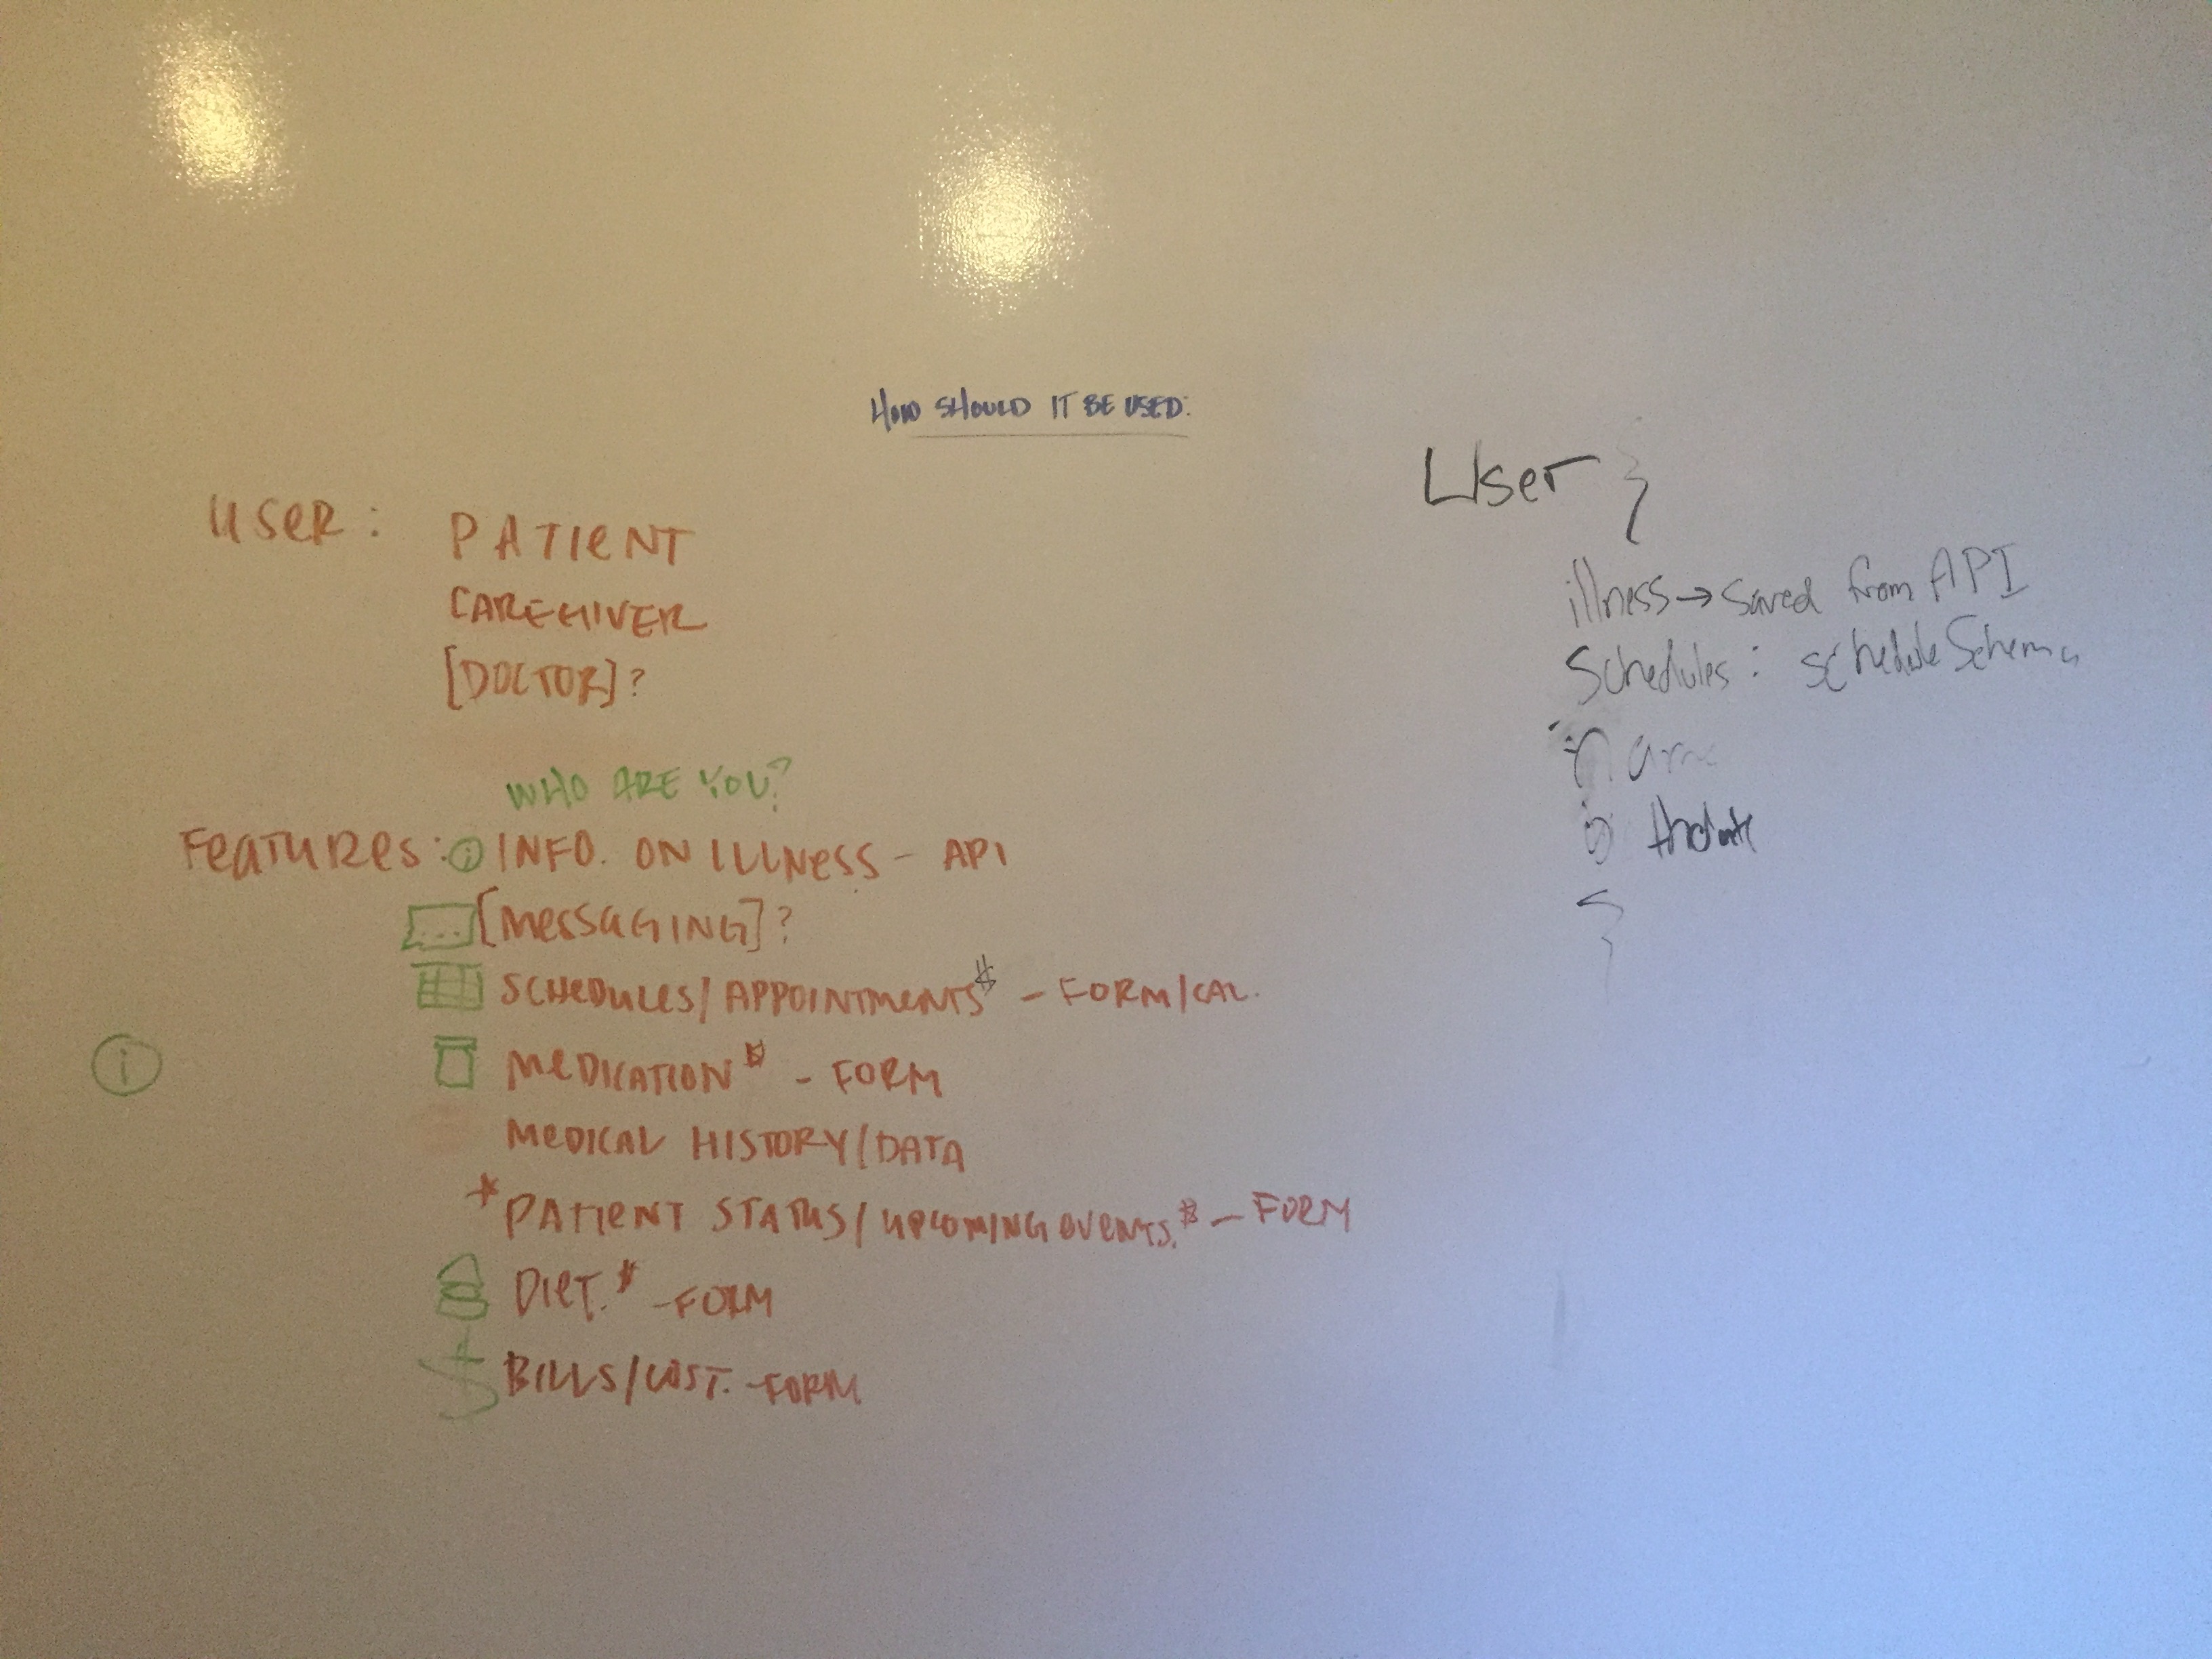 HOW SHOULD IT BE USED:
USER: PATIENT
CAREGIVER
[DOCTOR]?
WHO ARE YOU?
FEATURES: i INFO. ON ILLNESS - API
[MESSAGING]?
SCHEDULES/APPOINTMENTS - FORM/CAL.
i
MEDICATION* - FORM
MEDICAL HISTORY/DATA
*PATIENT STATUS/UPCOMING EVENTS.* - FORM
DIET.* - FORM
$ BILLS/COST. - FORM
User {
illness → saved from API
Schedules: scheduleSchema
}